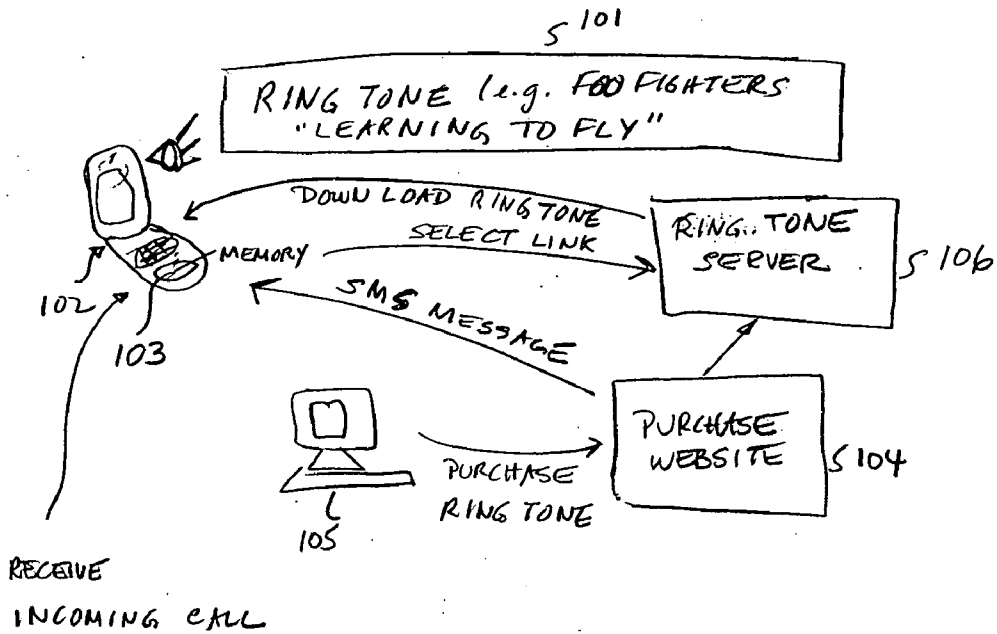 101
RING TONE (e.g. FOO FIGHTERS
"LEARNING TO FLY"
DOWNLOAD RINGTONE
SELECT LINK
RING TONE
SERVER
106
MEMORY
102
103
SMS MESSAGE
PURCHASE
WEBSITE
104
PURCHASE
RING TONE
105
RECEIVE
INCOMING CALL